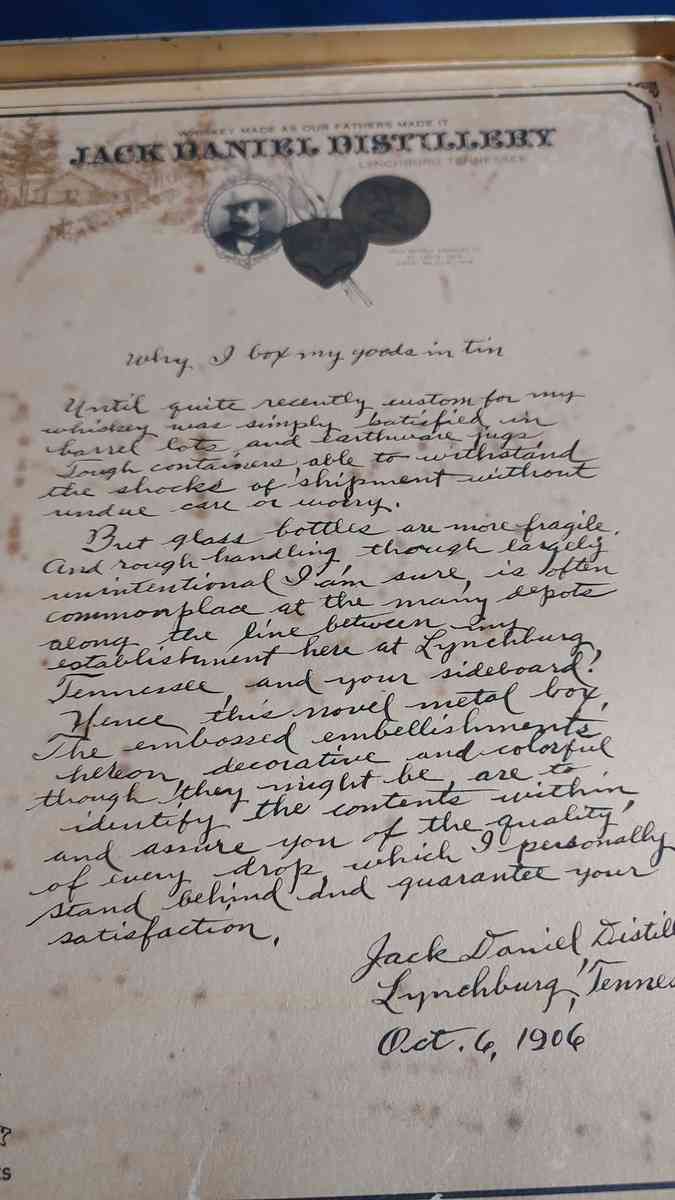 WHISKEY MADE AS OUR FATHERS MADE IT
JACK DANIEL DISTILLERY
LYNCHBURG TENNESSEE
Why I box my goods in tin
Until quite recently custom for my
whiskey was simply satisfied in
barrel lots and earthware jugs.
Tough containers, able to withstand
the shocks of shipment without
undue care or worry.
But glass bottles are more fragile.
And rough handling, though largely
unintentional I am sure, is often
commonplace at the many depots
along the line between my
establishment here at Lynchburg,
Tennessee, and your sideboard!
Hence this novel metal box.
The embossed embellishments
hereon, decorative and colorful
though they might be, are to
identify the contents within
and assure you of the quality
of every drop, which I personally
stand behind and guarantee your
satisfaction.
Jack Daniel Distill
Lynchburg, Tennes
Oct. 6, 1906